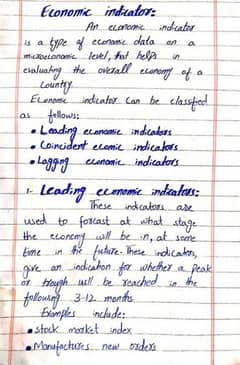 Economic indicator:
An economic indicator
is a type of economic data on a
microeconomic level, that helps in
evaluating the overall economy of a
Country.
Economic indicator can be classified
as follows:
• Leading economic indicators
• Coincident ecomic indicators
• Lagging economic indicators
1- Leading economic indicators:
These indicators are
used to forcast at what stage
the economy will be in, at some
time in the future. These indicators,
give an indication for whether a Peak
or trough will be reached in the
following 3-12 months
Examples include:
• Stock market index
• Manufactures new orders